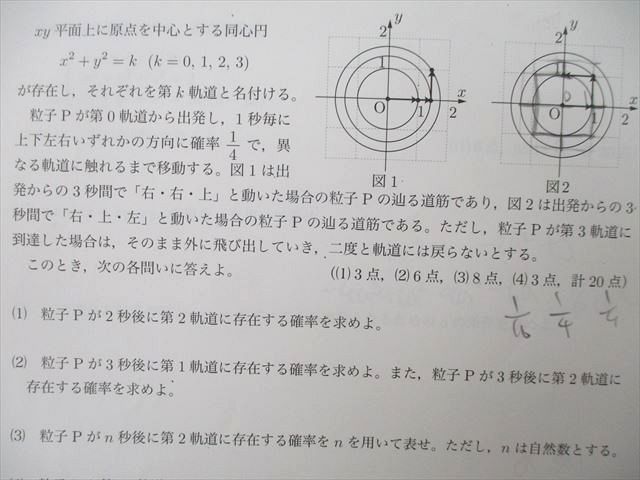 xy平面上に原点を中心とする同心円
x² + y² = k (k = 0, 1, 2, 3)
が存在し，それぞれを第k軌道と名付ける。
粒子Pが第0軌道から出発し，1秒毎に
上下左右いずれかの方向に確率1/4で，異
なる軌道に触れるまで移動する。図1は出
y
2
1
O
1
2
x
図1
y
2
1
O
1
2
x
図2
発からの3秒間で「右・右・上」と動いた場合の粒子Pの辿る道筋であり，図2は出発からの3
秒間で「右・上・左」と動いた場合の粒子Pの辿る道筋である。ただし，粒子Pが第3軌道に
到達した場合は，そのまま外に飛び出していき，二度と軌道には戻らないとする。
このとき，次の各問いに答えよ。
((1) 3点，(2) 6点，(3) 8点，(4) 3点，計20点)
1/16 1/4 1/4
(1) 粒子Pが2秒後に第2軌道に存在する確率を求めよ。
(2) 粒子Pが3秒後に第1軌道に存在する確率を求めよ。また，粒子Pが3秒後に第2軌道に
存在する確率を求めよ。
(3) 粒子Pがn秒後に第2軌道に存在する確率をnを用いて表せ。ただし，nは自然数とする。